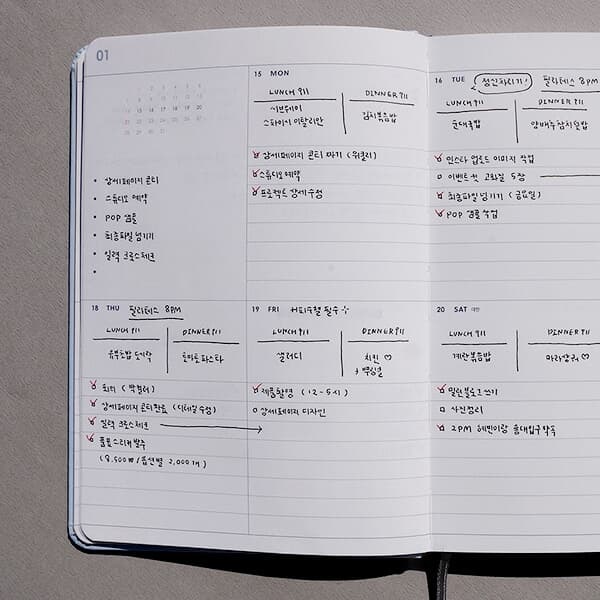 01
• 상세페이지 콘티
• 스튜디오 예약
• POP 샘플
• 최종파일 넘기기
• 일력 크로스체크
•
15 MON
LUNCH 911
DINNER 911
서브웨이
스파이시 이탈리안
김치볶음밥
상세페이지 콘티 짜기 (위클리)
스튜디오 예약
프로젝트 상세 수정
16 TUE 정신차리기! 필라테스 8PM
LUNCH 911
DINNER 911
순대국밥
양배추참치덮밥
인스타 업로드 이미지 작업
이벤트컷 고화질 5장
최종파일 넘기기 (금요일)
POP 샘플 작업
18 THU 필라테스 8PM
LUNCH 911
DINNER 911
유부초밥 도시락
토마토 파스타
회의 (박컬러)
상세페이지 콘티 완료 (디테일 수정)
일력 크로스체크
품표 스티커 발주
(8,500₩ / 옵션별 2,000개)
19 FRI 커피수혈 필수
LUNCH 911
DINNER 911
샐러디
치킨 ♡
제품촬영 (12-5시)
상세페이지 디자인
20 SAT 대한
LUNCH 911
DINNER 911
계란볶음밥
마라쌍궈 ♡
밀린 블로그 쓰기
사진정리
2PM 혜빈이랑 홍대입구 약속